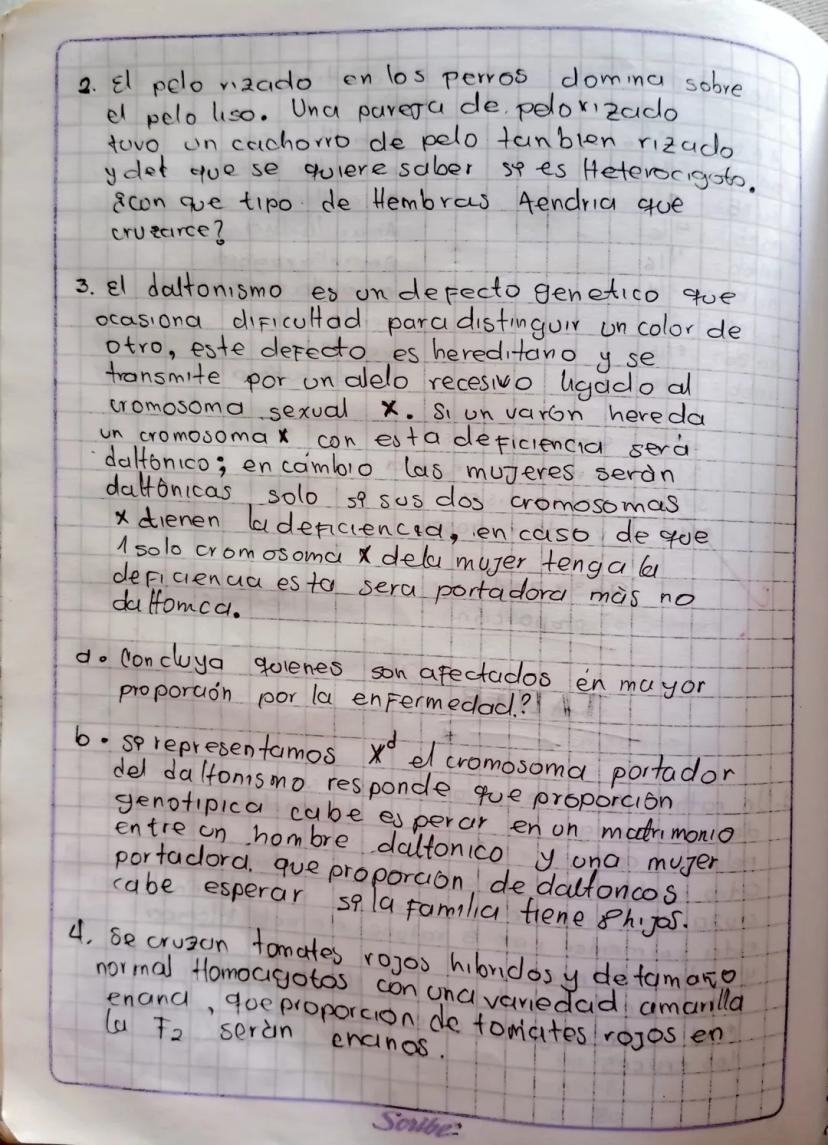 2. El pelo rizado en los perros domina sobre
el pelo liso. Una pareja de pelo rizado
tuvo un cachorro de pelo tanbien rizado
y del que se quiere saber si es Heterocigoto.
¿con que tipo de Hembras tendria que
cruzarce?
3. El daltonismo es un defecto genetico que
ocasiona dificultad para distinguir un color de
otro, este defecto es hereditario y se
transmite por un alelo recesivo ligado al
cromosoma sexual X. Si un varón hereda
un cromosoma X con esta deficiencia será
daltónico; en cambio las mujeres seràn
daltónicas solo si sus dos cromosomas
X tienen la deficiencia, en caso de que
1 solo cromosoma X dela mujer tenga la
deficiencia esta sera portadora màs no
daltonica.
a. Concluya quienes son afectados en mayor
proporción por la enfermedad?
b. si representamos X^d el cromosoma portador
del daltonismo responde que proporción
genotipica cabe esperar en un matrimonio
entre un hombre daltonico y una mujer
portadora. que proporcion de daltoncos
cabe esperar si la familia tiene 8 hijos.
4. Se cruzan tomates rojos hibridos y de tamaño
normal Homocigotos con una variedad amarilla
enana, que proporcion de tomates rojos en
la F2 seràn enanos.
Scribe